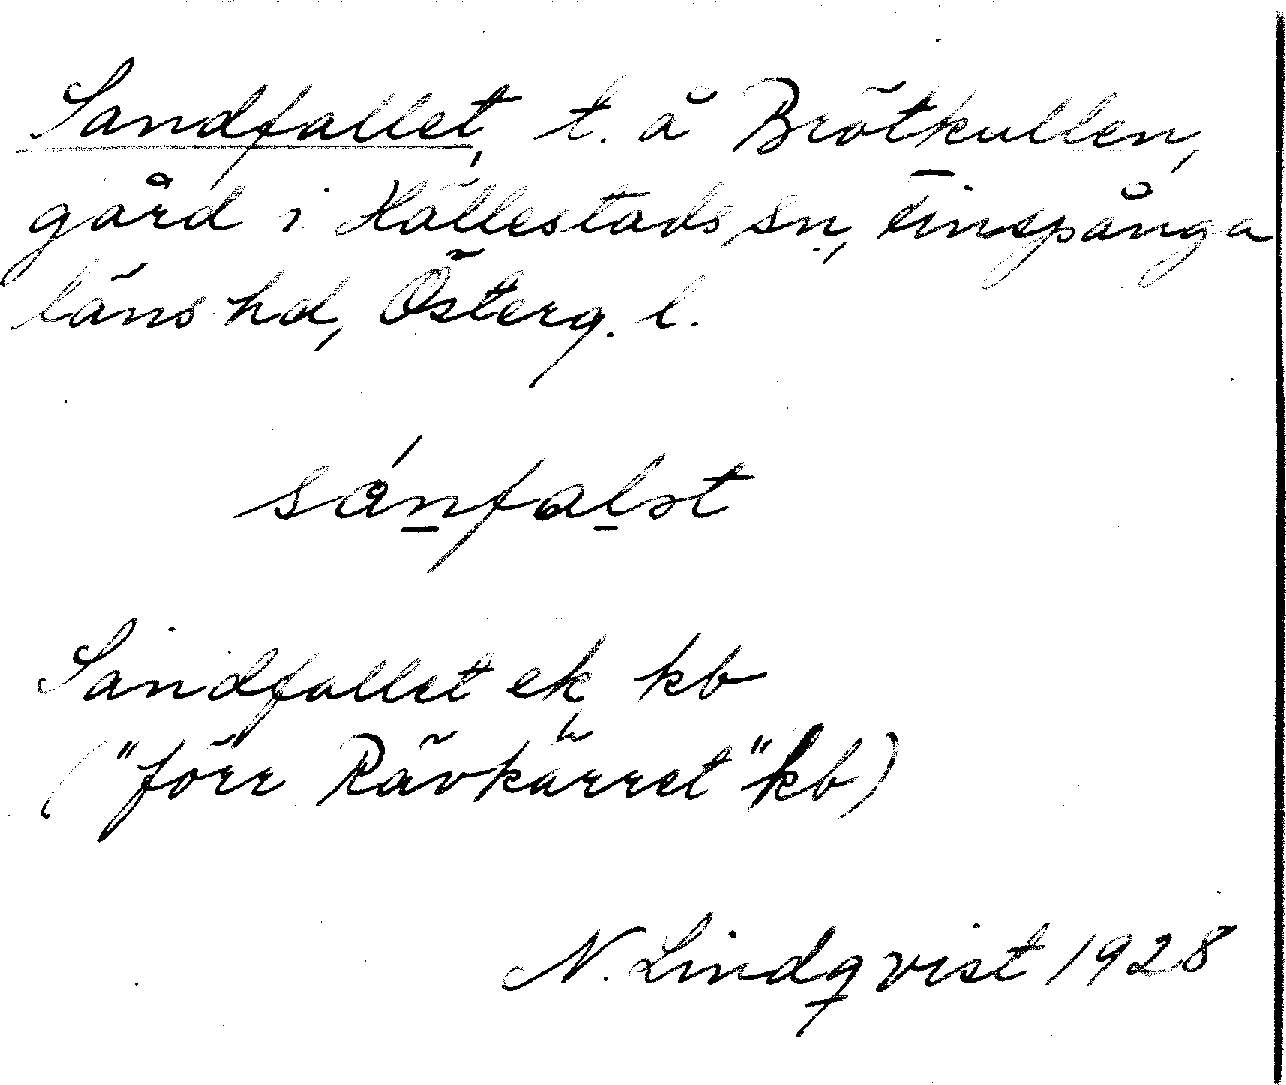 Sandfallet, t. å Brötkullen,
gård i Hällestads sn, Finspånga
läns hd, Österg. l.
sánfalət
Sandfallet ek, kb
("förr Rävkärret" kb)
N. Lindqvist 1928